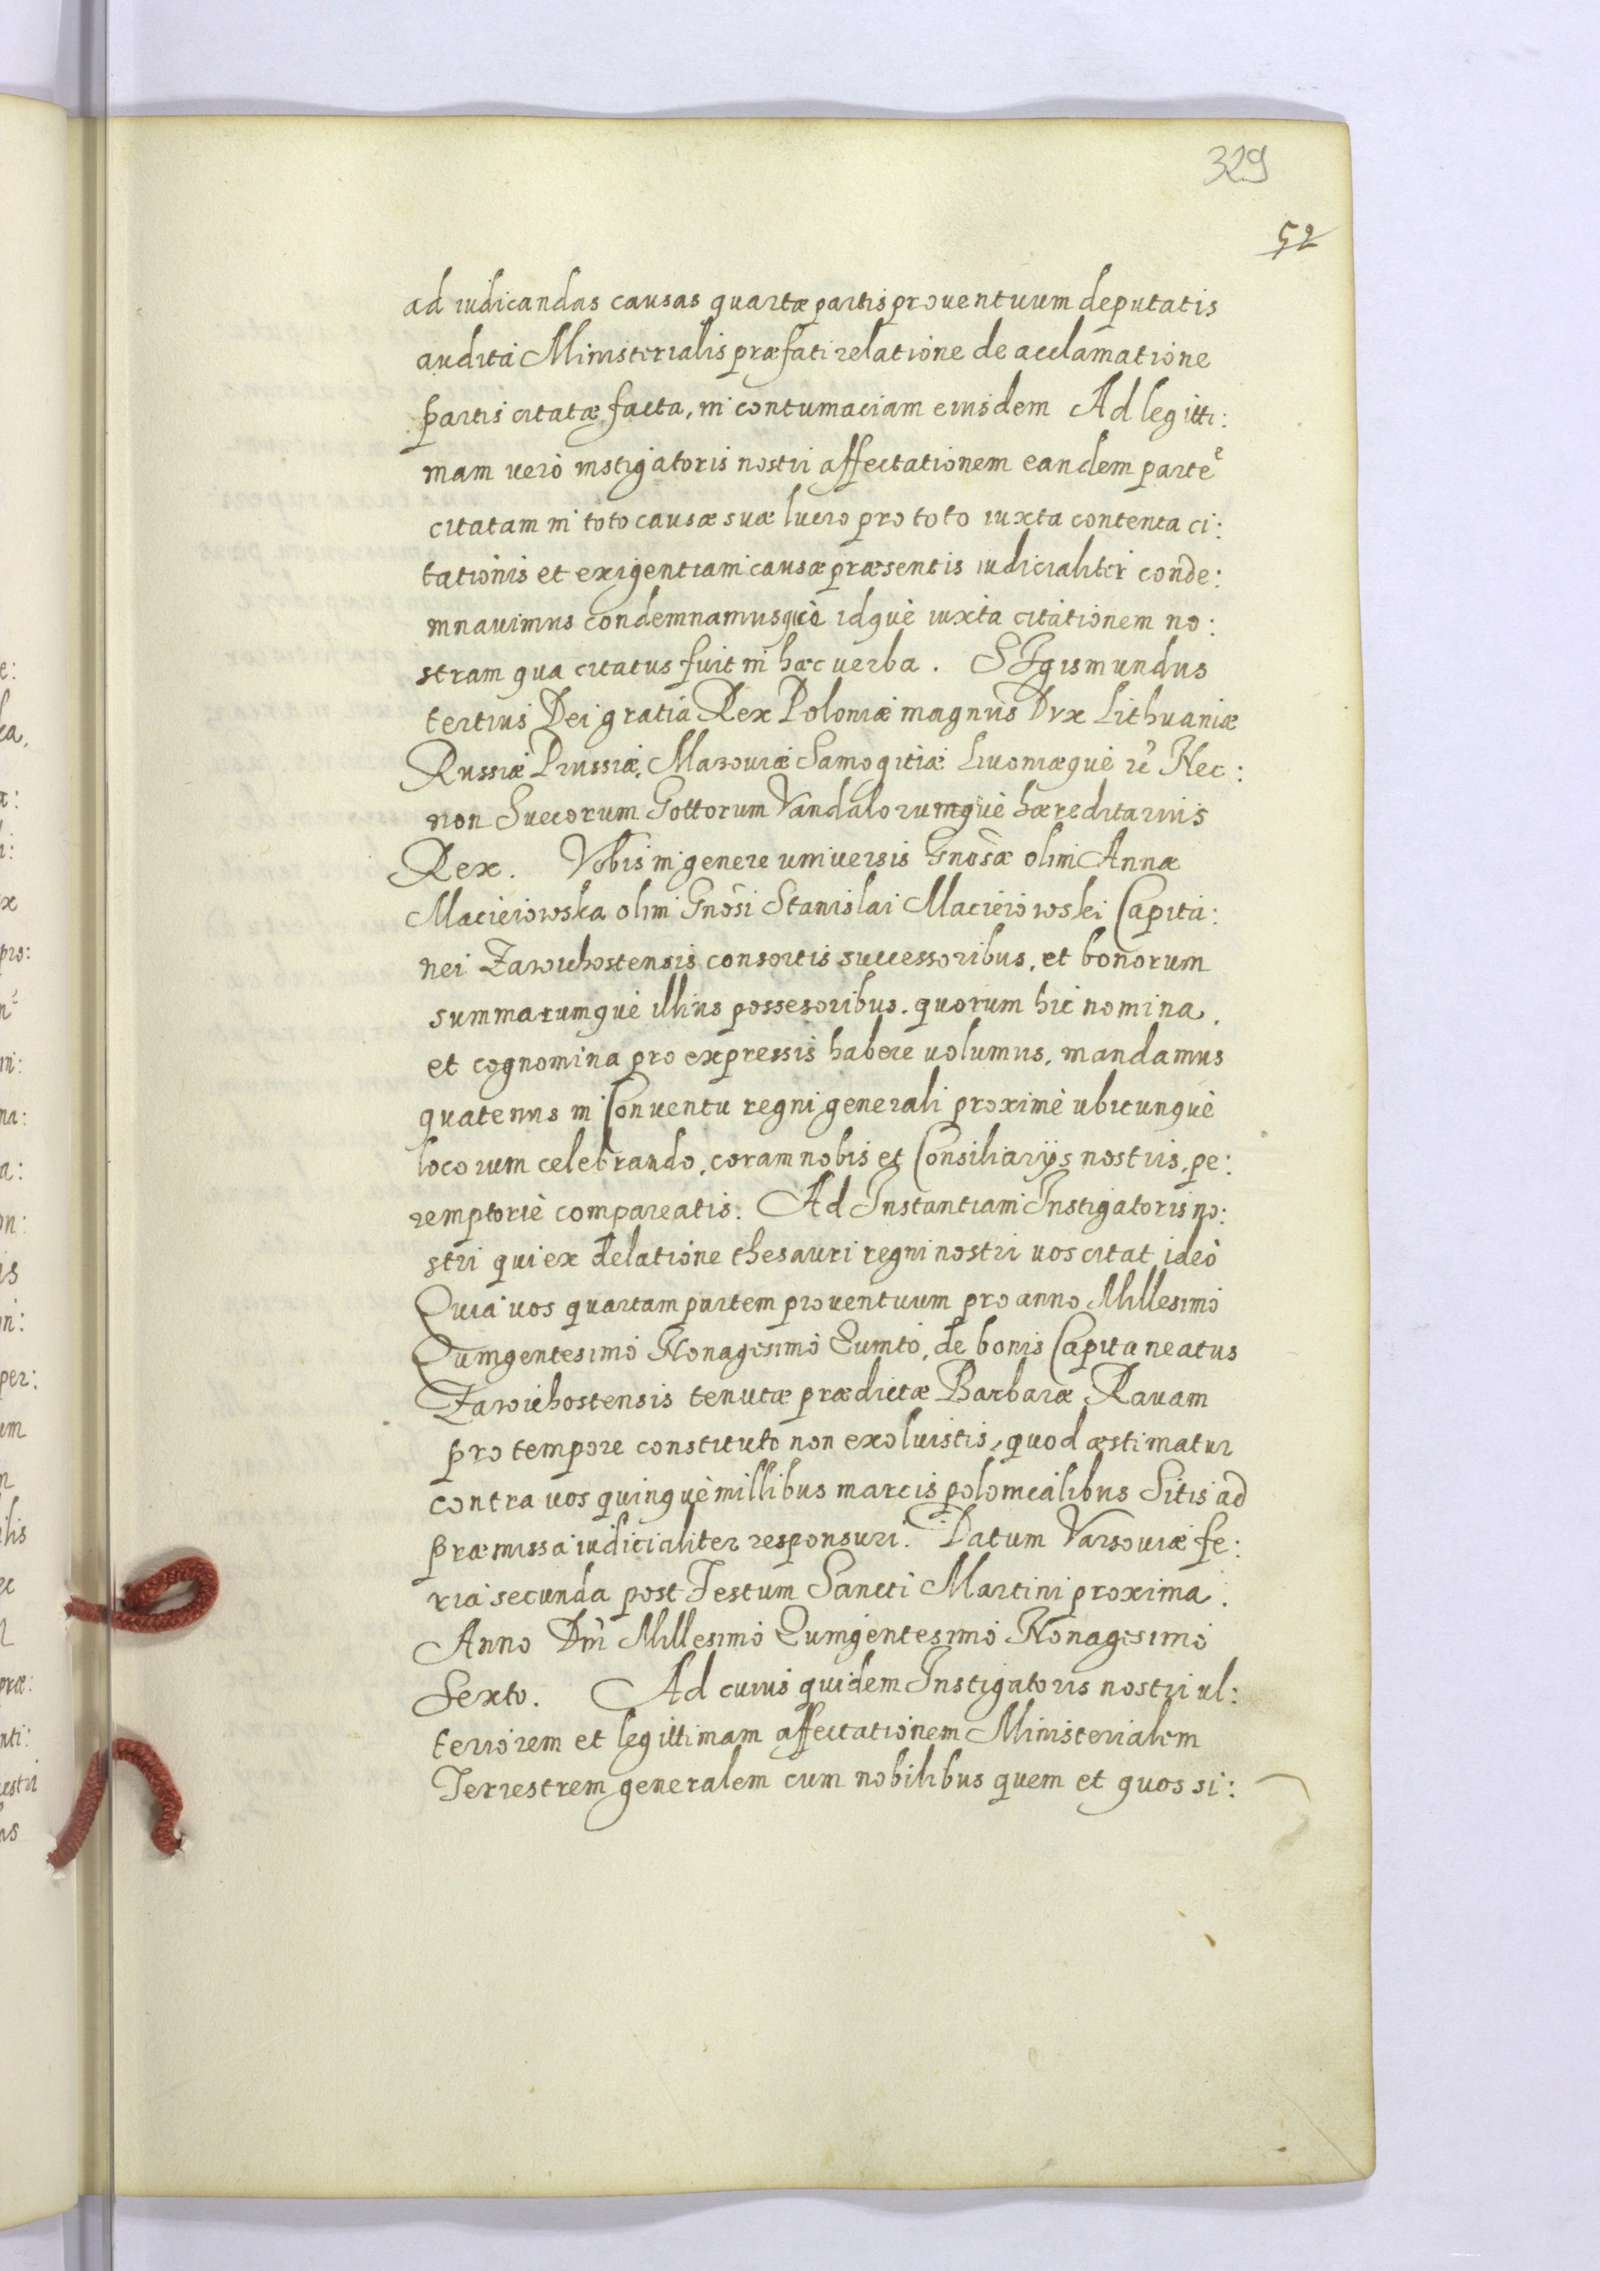 329
52
ad iudicandas causas quartæ partis prouentuum deputatis
audita Ministerialis præfati relatione de acclamatione
partis citatæ facta, in contumaciam eiusdem Ad legitti:
mam verò instigatoris nostri affectationem eandem parte
citatam in toto causæ suæ lucro pro toto iuxta contenta ci:
tationis et exigentiam causæ præsentis iudicialiter conde:
mnauimus condemnamusquè idquè iuxta citationem no:
stram qua citatus fuit in hæc verba. SIgismundus
tertius Dei gratia Rex Poloniæ magnus Dux Lithuaniæ
Russiæ Prussiæ, Mazouiæ Samogitiæ Liuoniæquè Nec:
non Suecorum Gottorum Vandalorumquè hæreditarius
Rex. Vobis in genere uniuersis Gnosæ olim Annæ
Macieiowska olim Gnosi Stanislai Macieiowski Capita:
nei Zawichostensis consortis successoribus, et bonorum
summarumquè illius possesoribus. quorum hic nomina,
et cognomina pro expressis habere uolumus, mandamus
quatenus in Conuentu regni generali proximè ubicunquè
locorum celebrando, coram nobis et Consiliarijs nostris, pe:
remptoriè compareatis. Ad Instantiam Instigatoris no:
stri qui ex delatione thesauri regni nostri uos citat ideò
Quia uos quartam partem prouentuum pro anno Millesimo
Quingentesimo Nonagesimo Quinto, de bonis Capitaneatus
Zawichostensis tenutæ prædictæ Barbaræ Rauam
pro tempore constituto non exoluistis, quod æstimatur
contra uos quinquè millibus marcis polonicalibus Sitis ad
præmissa iudicialiter responsuri. Datum Varsouiæ fe:
ria secunda post Festum Sancti Martini proxima.
Anno Dni Millesimo Quingentesimo Nonagesimo
Sexto. Ad cuius quidem Instigatoris nostri ul:
teriorem et legittimam affectationem Ministerialem
Terrestrem generalem cum nobilibus quem et quos si: